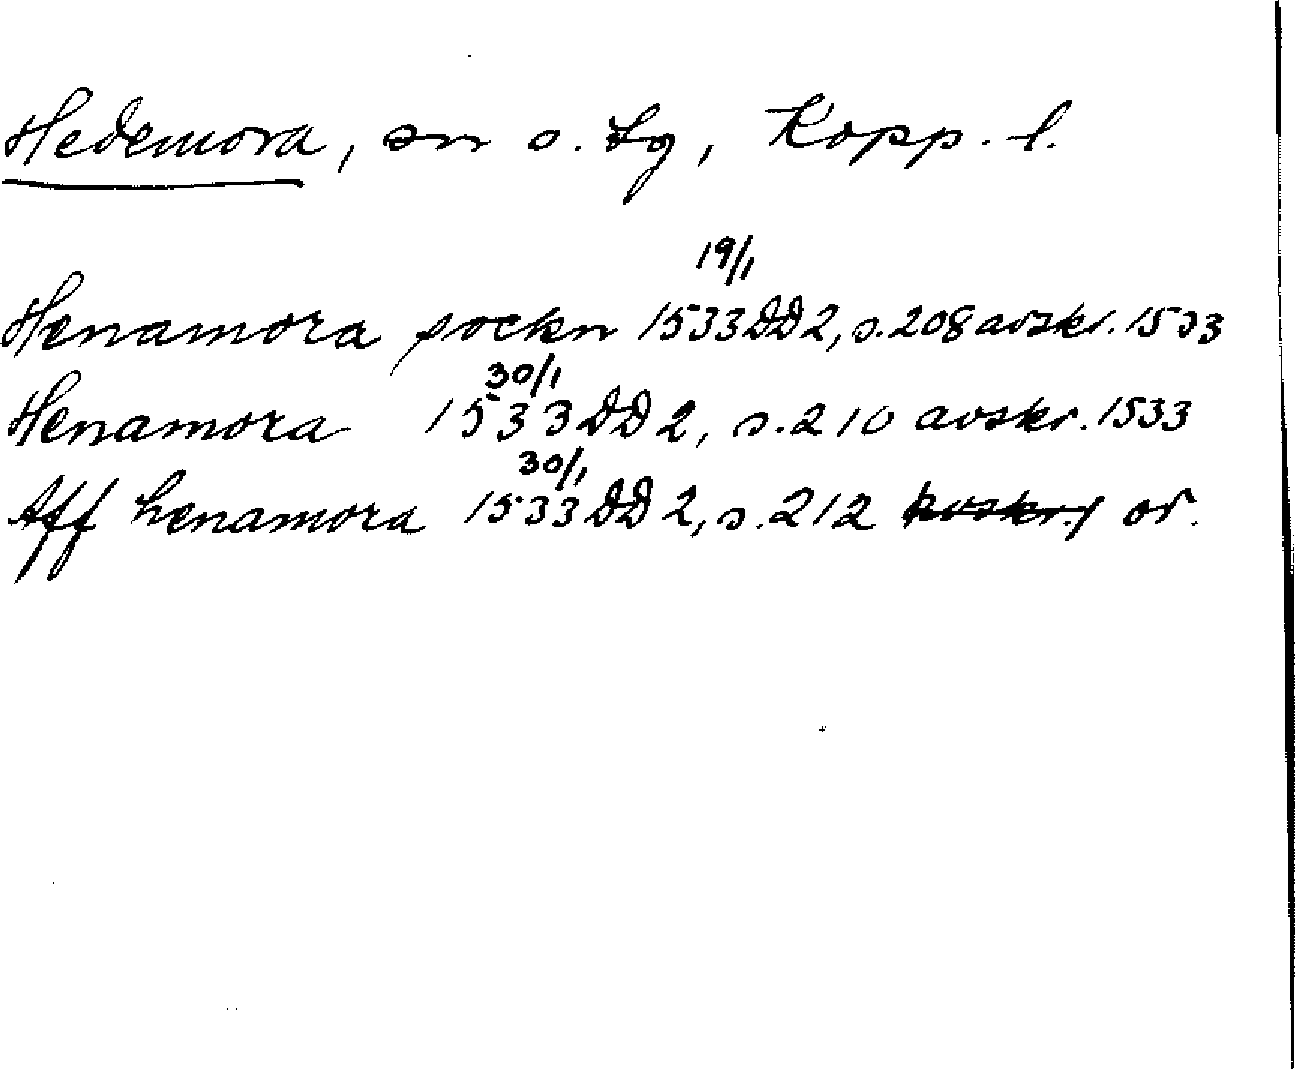 Hedemora, sn o. tg, Kopp. l.
19/1
Henamora sockn 1533 DD 2, s. 208 avskr. 1533
30/1
Henamora 1533 DD 2, s. 210 avskr. 1533
30/1
Aff henamora 1533 DD 2, s. 212 avskr. or.